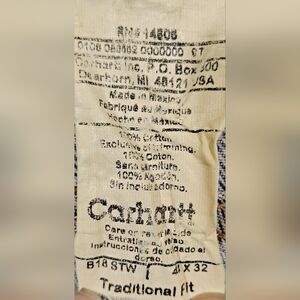 RN# 14806
Carhartt Inc. P.O. Box 600
Dearborn, MI 48121 USA
Made in Mexico
Fabriqué au Mexique
Hecho en México
100% Cotton
Exclusive of trimming.
100% Coton.
Sans garniture.
100% Algodón.
Sin incluir adorno.
Carhartt
Care on reverse side
Instrucciones de cuidado al
dorso.
B18 STW X 32
Traditional fit